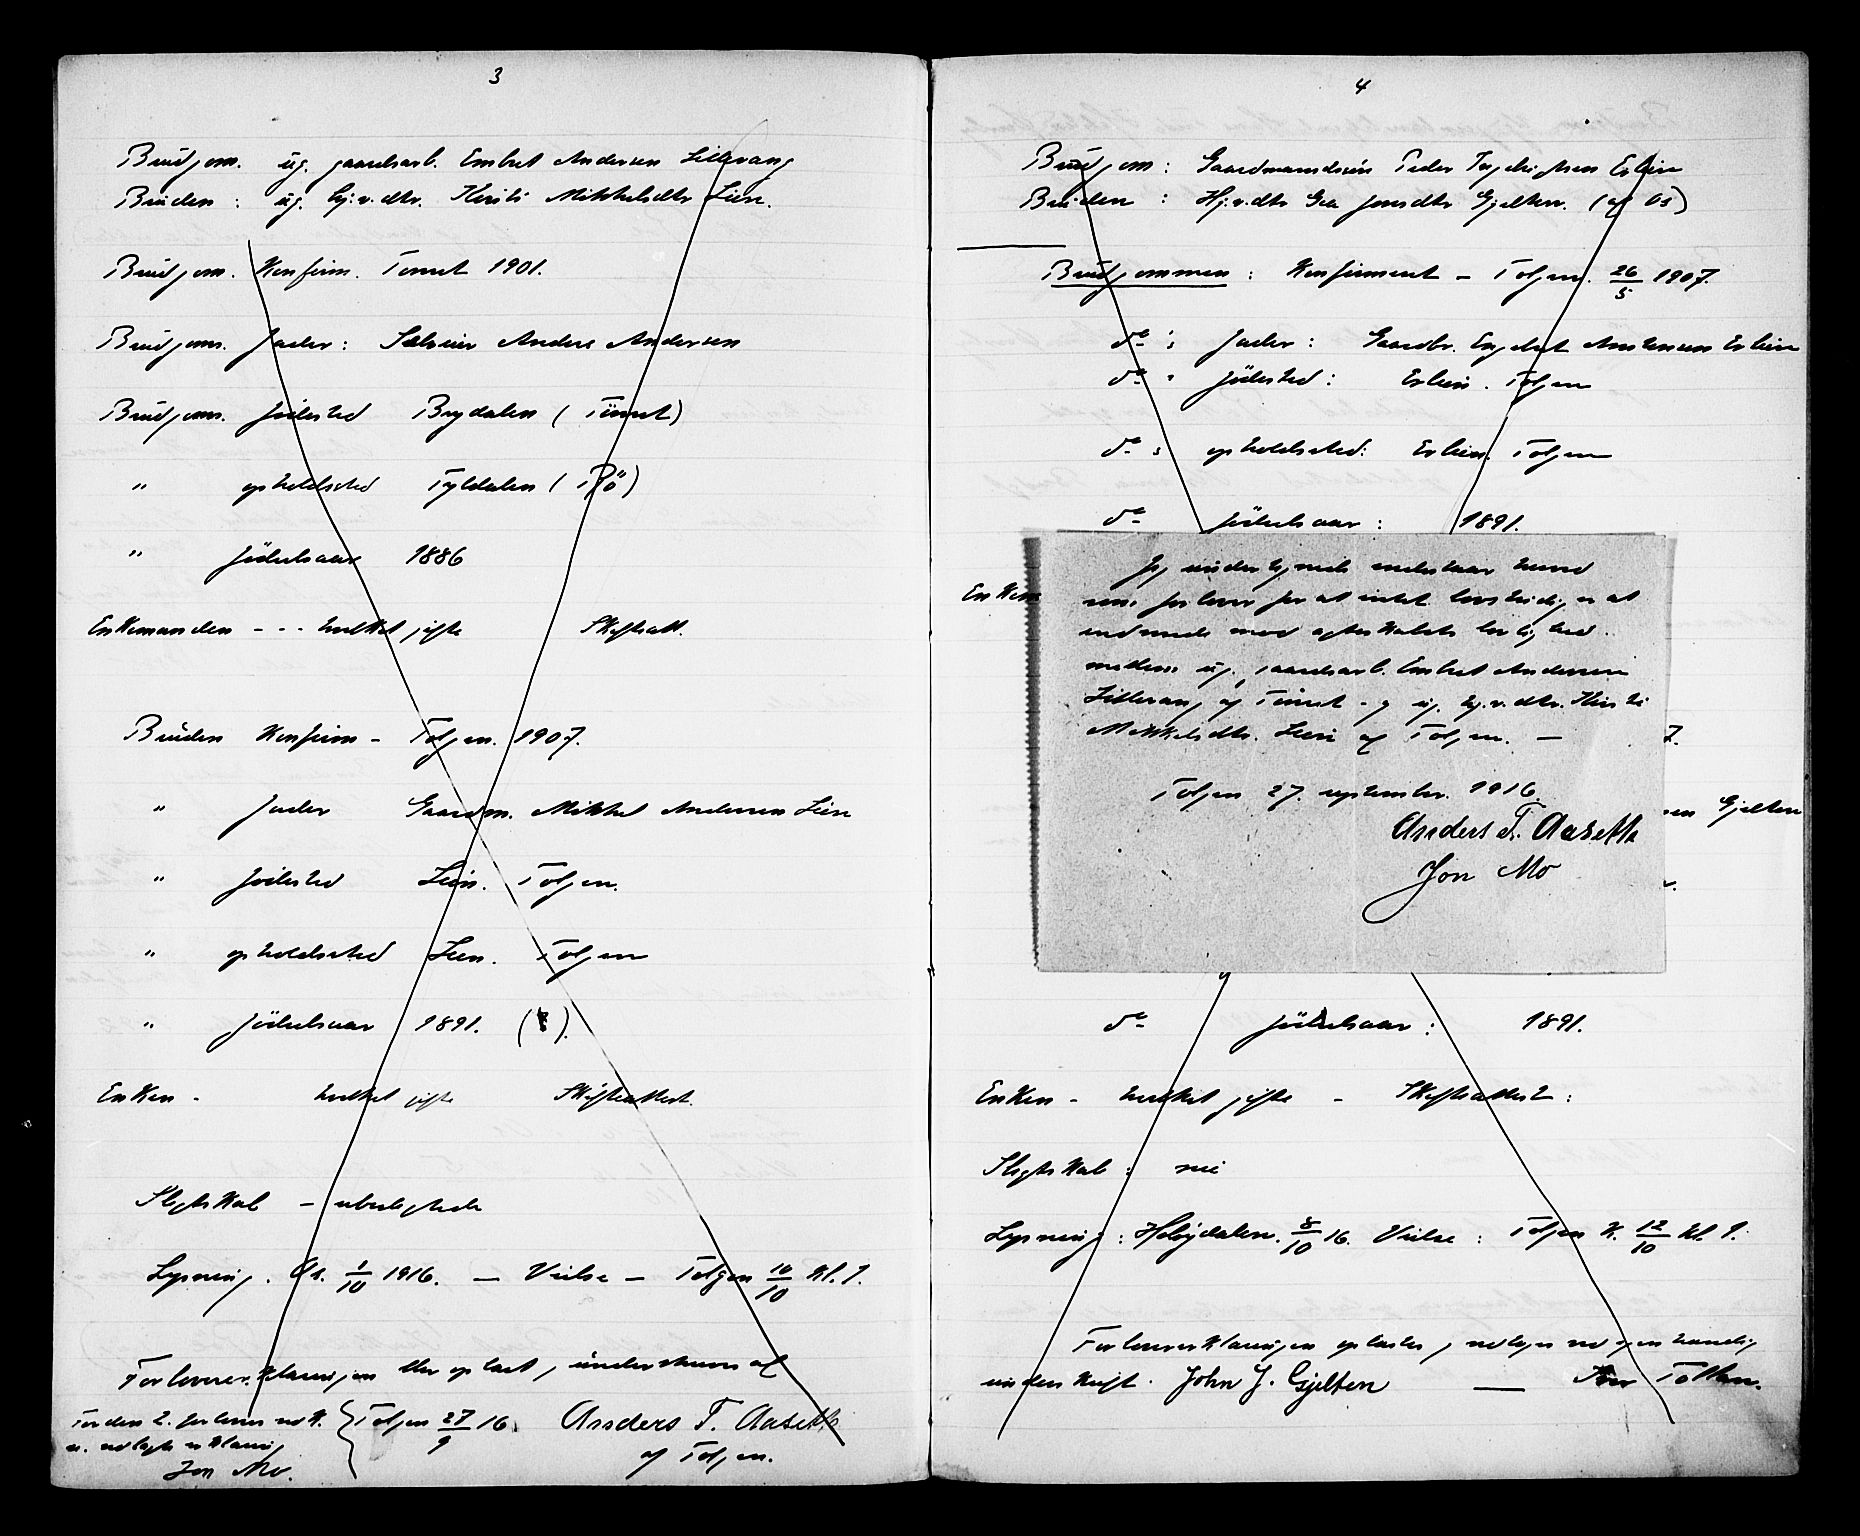 3
Brudgom. ug. gaardsarb. Embret Andersen Lillevang
Bruden : ug. hj.v.dtr. Kirsti Mikkelsdtr Lien.
Brudgom. Konfirm. Tönset 1901.
Brudgoms. fader : Anders Andersen
Brudgoms. födested Brydalen (Tönset)
" opholdssted Tyldalen ( Rö )
" födselsaar 1886
Enkemanden - - - hvilket gifte Skifteatt.
Bruden Konfirm - Tolgen. 1907.
" fader Gaardm. Mikkel Andersen Lien
" födested Lien. Tolgen.
" opholdssted Lien. Tolgen
" födselsaar 1891. ( ).
Enken - hvilket gifte Skifteattest.
Slegtskab - ubeslegtede
Lysning. Os. 1/10 1916. — Vielse - Tolgen 16/10 kl. 1.
Forlovererklæringen blev oplæst, underskreves af
For den 2. forlover
Jon Mo.
Tolgen 27/9 16. Anders T. Aaseth
af Tolgen.
4
Brudgom : Gaardmandssön Peder Ingebrigtsen Erlien
Bruden : Hj.v.dtr Gea Jonsdtr Gjelten. (af Os)
Brudgommen : Konfirmeret - Tolgen. 26/5 1907.
do : fader : Gaardbr. Engebret Amundsen Erlien
do : födested : Erlien. Tolgen
do : opholdssted : Erlien. Tolgen
do födselsaar : 1891.
Enkem
Jeg undertegnede indestaar herved
som forlover for at intet lovstridig er at
indvende mod egteskabets lovlighed
mellem ug. gaardsarb. Embret Andersen
Lillevang af Tönset og ug. hj.v.dtr. Kirsti
Mikkelsdtr. Lien af Tolgen. —
Tolgen 27. september. 1916
Anders T. Aaseth
Jon Mo
7.
sen Gjelten
do födselsaar : 1891.
Enken - hvilket gifte - Skifteattest :
Slegtskab : nei
Lysning : Holöydalen. 8/10 16. Vielse : Tolgen K. 12/10 kl. 1.
Forlovererklæringen oplæstes, vedtoges ved egenhændig
underskrift. John J. Gjelten —